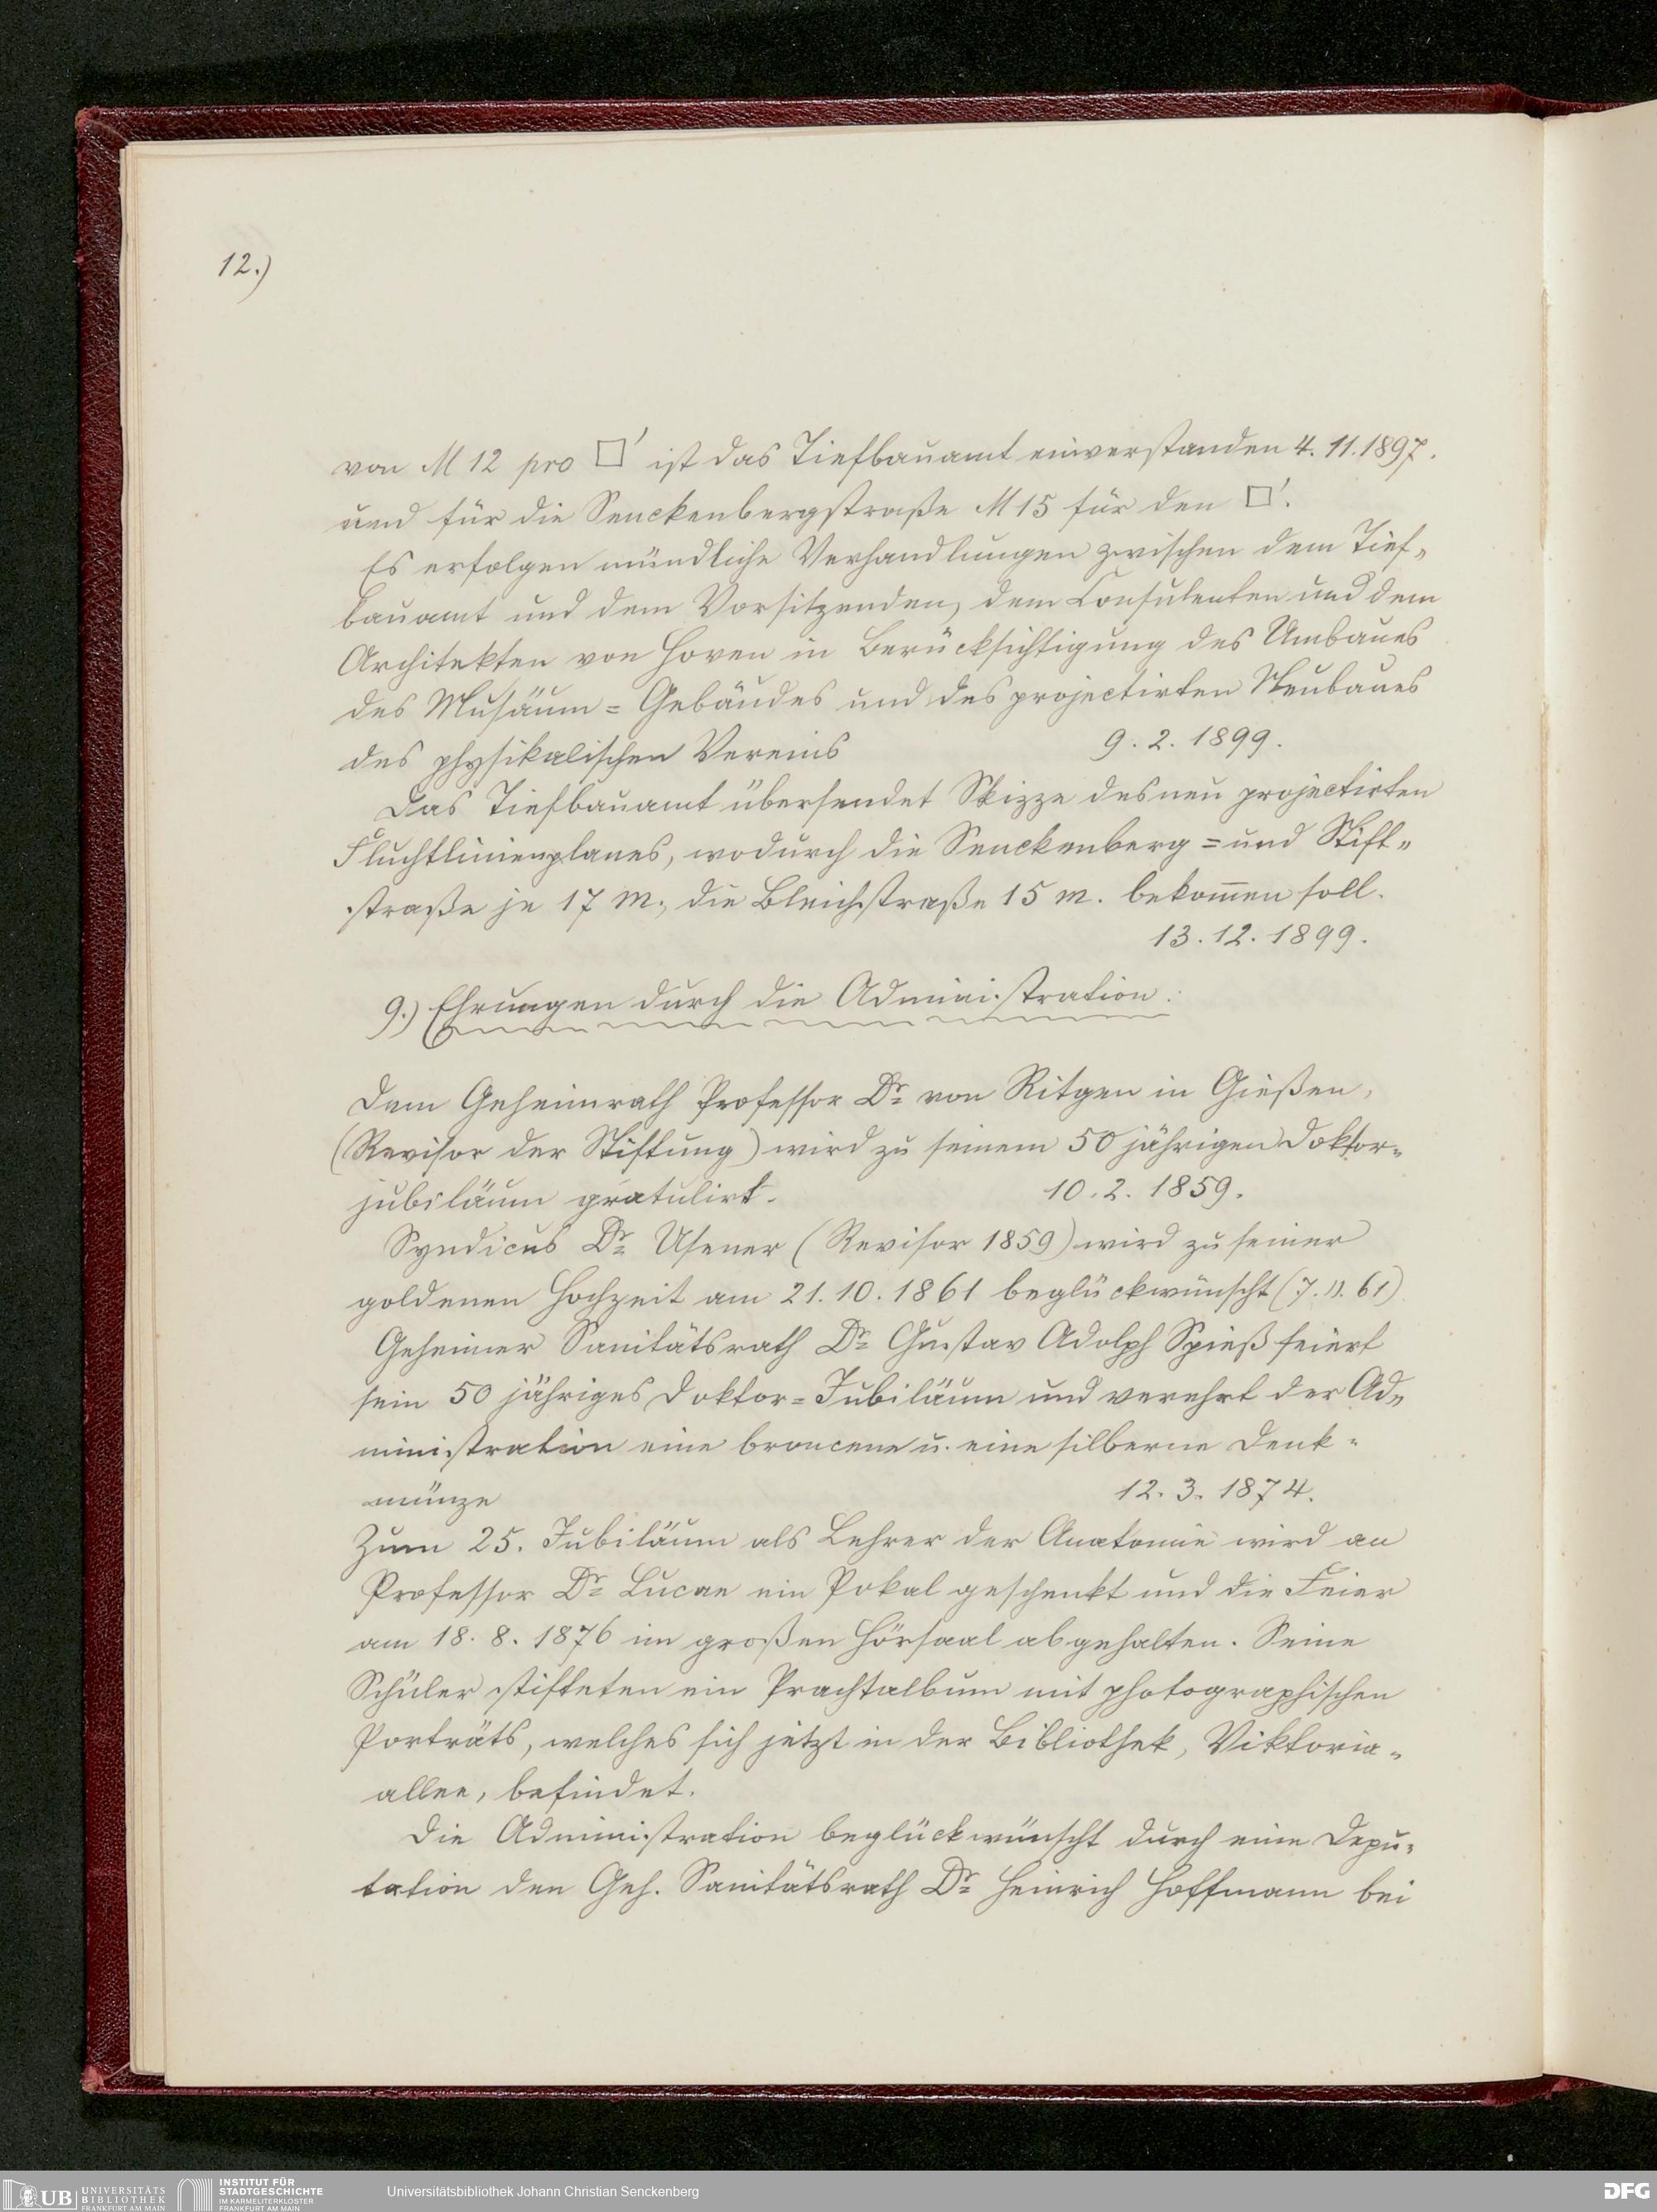 12.)
von M 12 pro □' ist das Tiefbauamt einverstanden 4. 11. 1897.
und für die Senckenbergstraße M 15 für den □'.
Es erfolgen mündliche Verhandlungen zwischen dem Tief-
bauamt und dem Vorsitzenden, dem Consulenten und dem
Architekten von Hoven in Berücksichtigung des Umbaues
des Musäum=Gebäudes und des projectirten Neubaues
des physikalischen Vereins 9. 2. 1899.
Das Tiefbauamt übersendet Skizze des neu projectirten
Fluchtlinienplanes, wodurch die Senckenberg= und Stift-
straße je 17 m., die Bleichstraße 15 m. bekom̄en soll.
13. 12. 1899.
9.) Ehrungen durch die Administration:
Dem Geheimrath Professor Dr von Ritgen in Gießen,
(Revisor der Stiftung) wird zu seinem 50 jährigen Doktor-
jubiläum gratulirt. 10. 2. 1859.
Syndicus Dr Usener (Revisor 1859) wird zu seiner
goldenen Hochzeit am 21. 10. 1861 beglückwünscht (7. 11. 61)
Geheimer Sanitätsrath Dr Gustav Adolph Spieß feiert
sein 50 jähriges Doktor=Jubiläum und verehrt der Ad-
ministration eine broncene u. eine silberne Denk-
münze 12. 3. 1874.
Zum 25. Jubiläum als Lehrer der Anatomie wird an
Professor Dr Lucae ein Pokal geschenkt und die Feier
am 18. 8. 1876 im großen Hörsaal abgehalten. Seine
Schüler stifteten ein Prachtalbum mit photographischen
Porträts, welches sich jetzt in der Bibliothek, Viktoria-
allee, befindet.
Die Administration beglückwünscht durch eine Depu-
tation den Geh. Sanitätsrath Dr Heinrich Hoffmann bei
UB UNIVERSITÄTS
BIBLIOTHEK
FRANKFURT AM MAIN
INSTITUT FÜR
STADTGESCHICHTE
IM KARMELITERKLOSTER
FRANKFURT AM MAIN
Universitätsbibliothek Johann Christian Senckenberg
DFG